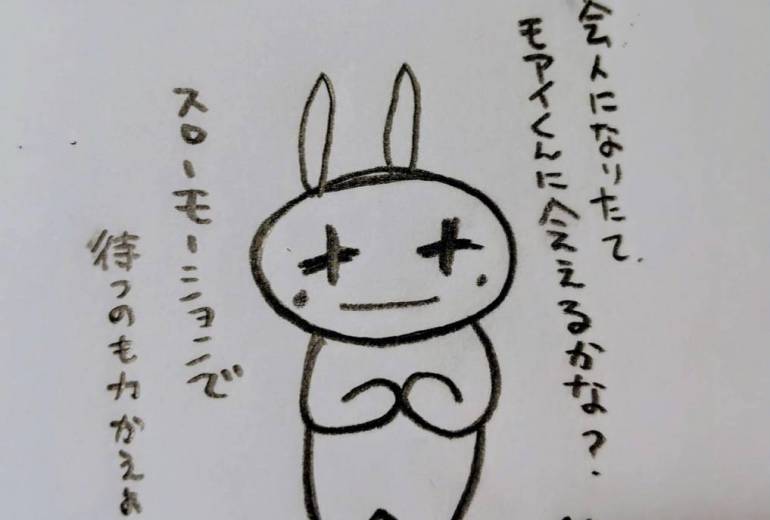 会人になりたて、
モアイくんに会えるかな?
スローモーションで
待つのも力かえぁ